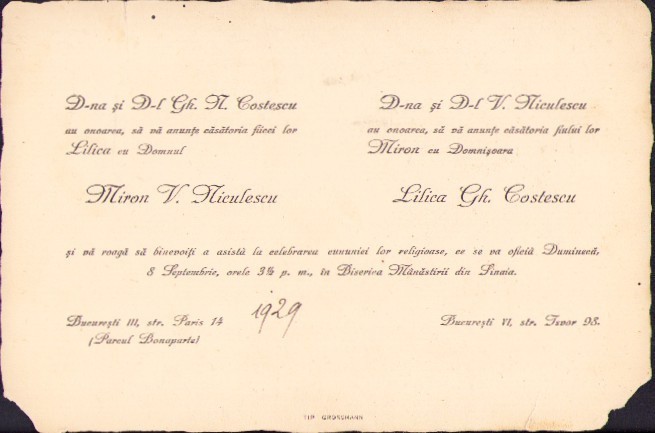 D-na și D-l Gh. N. Costescu
au onoarea, să vă anunțe căsătoria fiicei lor
Lilica cu Domnul
Miron V. Niculescu
D-na și D-l V. Niculescu
au onoarea, să vă anunțe căsătoria fiului lor
Miron cu Domnișoara
Lilica Gh. Costescu
și vă roagă să binevoiți a asista la celebrarea cununiei lor religioase, ce se va oficia Duminecă,
8 Septembrie, orele 3½ p. m., în Biserica Mânăstirii din Sinaia.
București III, str. Paris 14
(Parcul Bonaparte)
1929
București VI, str. Isvor 98.
TIP. GROSSMANN